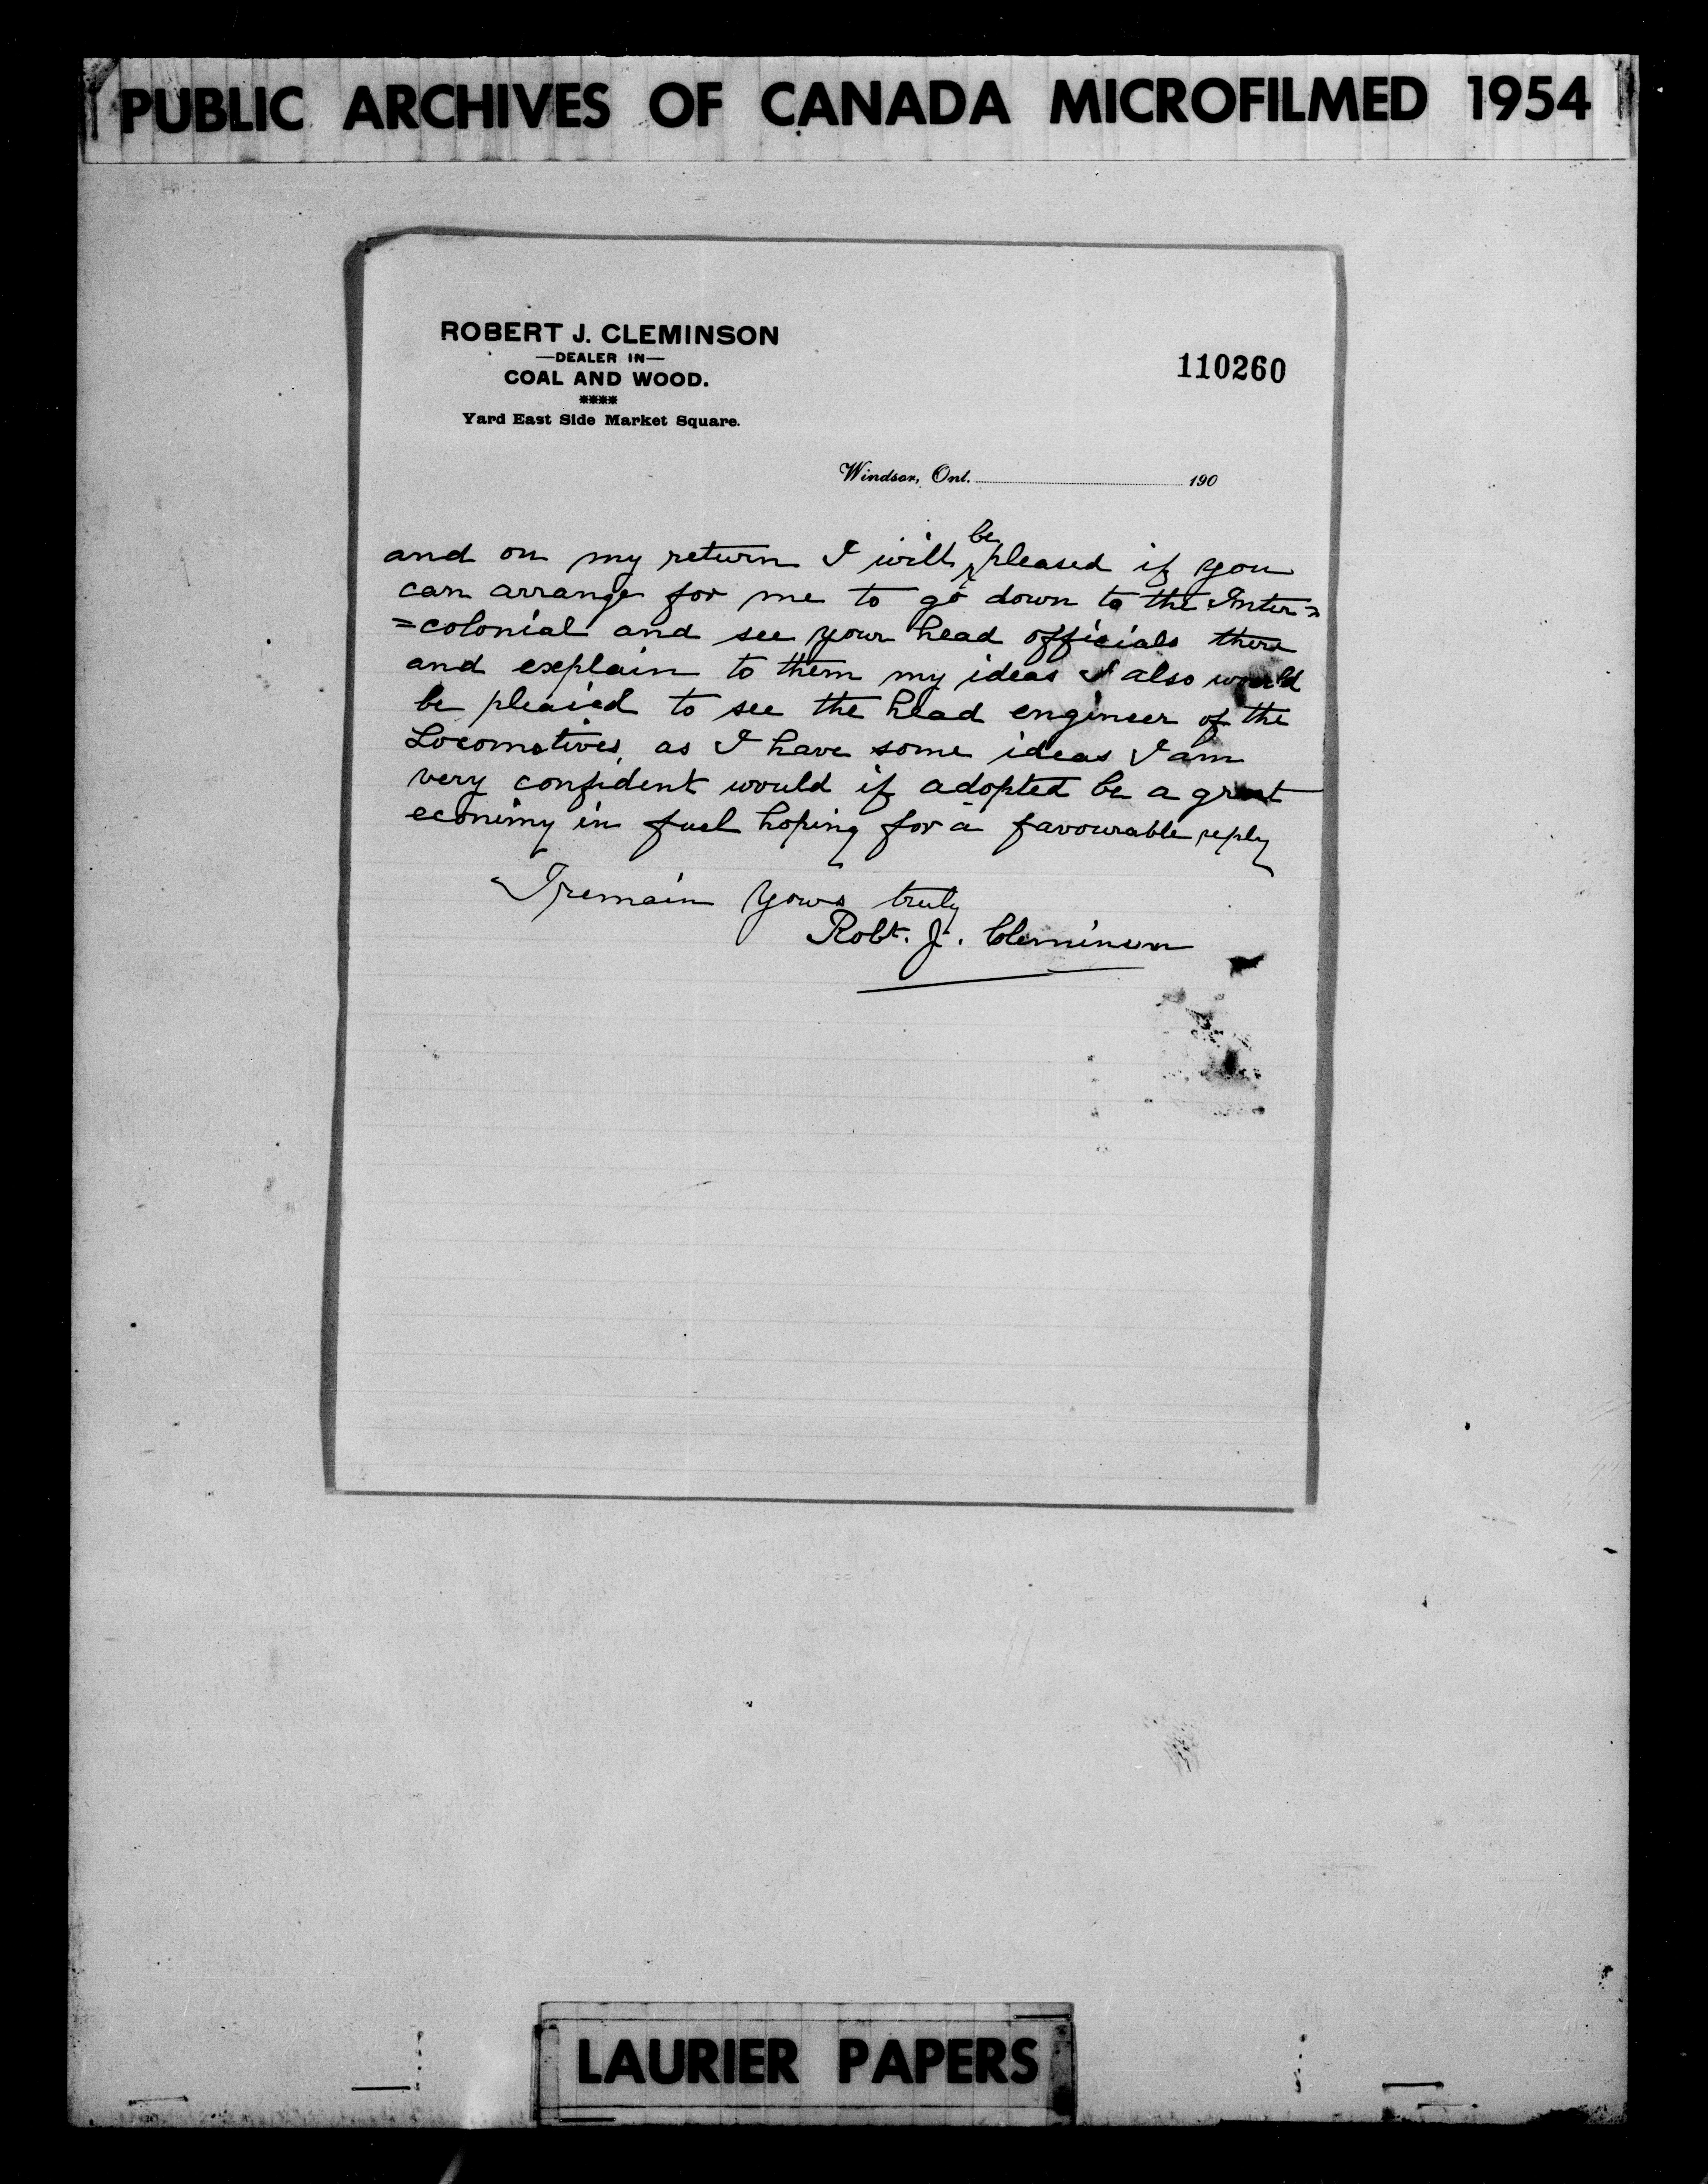 PUBLIC ARCHIVES OF CANADA MICROFILMED 1954
ROBERT J. CLEMINSON
—DEALER IN—
COAL AND WOOD.
****
Yard East Side Market Square.
110260
Windsor, Ont. 190
and on my return I will be pleased if you
can arrange for me to go down to the Inter=
=colonial and see your head officials there
and explain to them my ideas I also would
be pleased to see the head engineer of the
Locomotives, as I have some ideas I am
very confident would if adopted be a great
econimy in fuel hoping for a favourable reply
I remain yours truly
Robt. J. Cleminson
LAURIER PAPERS